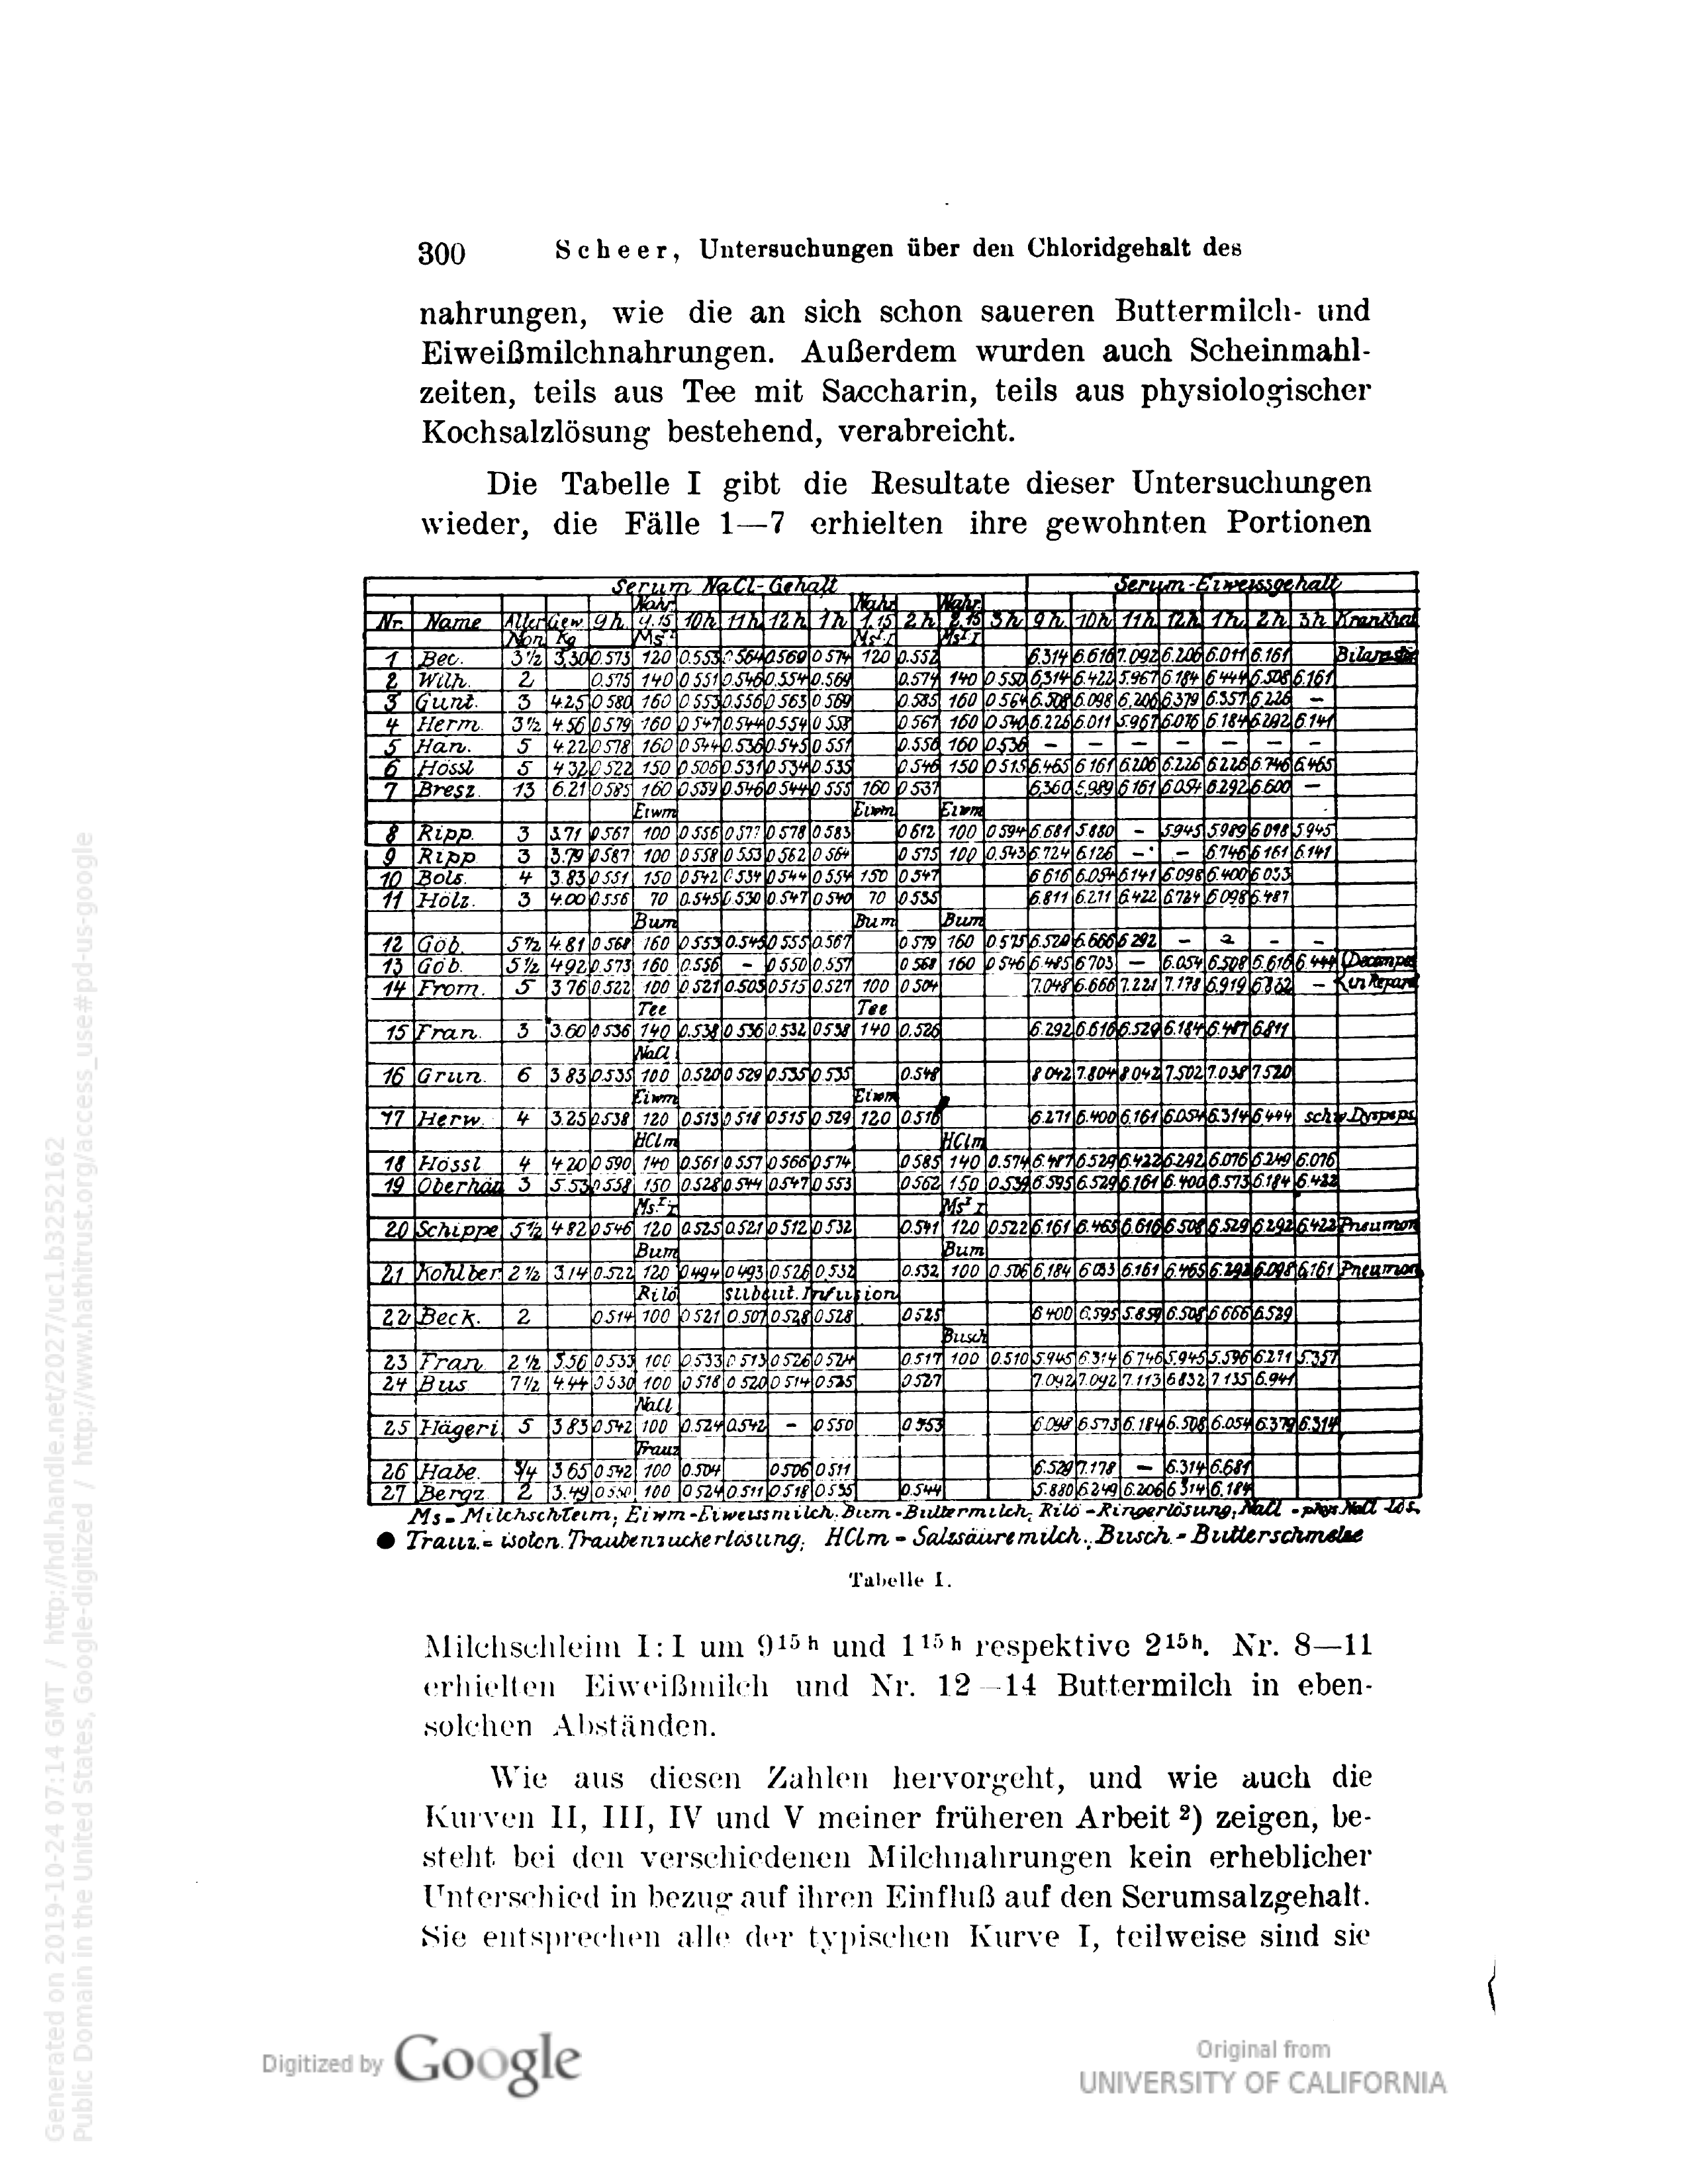 300 Scheer, Untersuchungen über den Chloridgehalt des
nahrungen, wie die an sich schon saueren Buttermilch- und
Eiweißmilchnahrungen. Außerdem wurden auch Scheinmahl-
zeiten, teils aus Tee mit Saccharin, teils aus physiologischer
Kochsalzlösung bestehend, verabreicht.
Die Tabelle I gibt die Resultate dieser Untersuchungen
wieder, die Fälle 1—7 erhielten ihre gewohnten Portionen
Serum NaCl-Gehalt Serum-Eiweissgehalt
Nahr. Nahr. Nahr.
Nr. Name Alter Gew 9h 9.15 10h 11h 12h 1h 1.15 2h 2.15 3h 9h 10h 11h 12h 1h 2h 3h Krankhei
Mon. Kg
1 Bec. 3½ 3,30 0.573 120 0.553 0.564 0.569 0.574 120 0.552 6.314 6.616 7.092 6.206 6.011 6.161
2 Wilh. 2 0.575 140 0.551 0.546 0.554 0.569 0.574 140 0.550 6.314 6.422 5.967 6.184 6.444 6.508 6.161
3 Gunt. 3 4.25 0.580 160 0.553 0.556 0.563 0.569 0.585 160 0.564 6.508 6.098 6.206 6.379 6.357 6.226 —
4 Herm. 3½ 4.56 0.579 160 0.547 0.544 0.554 0.558 0.567 160 0.540 6.226 6.011 5.967 6.076 6.184 6.292 6.141
5 Han. 5 4.22 0.578 160 0.544 0.536 0.545 0.551 0.556 160 0.536 — — — — — — —
6 Hössl 5 4.32 0.522 150 0.506 0.531 0.534 0.535 0.546 150 0.513 6.465 6.161 6.206 6.226 6.226 6.746 6.465
7 Bresz. 13 6.21 0.585 160 0.539 0.546 0.544 0.555 160 0.537 6.360 5.989 6.161 6.054 6.292 6.600 —
Eiwm Eiwm Eiwm
8 Ripp. 3 3.71 0.567 100 0.556 0.577 0.578 0.583 0.612 100 0.594 6.681 5.880 — 5.945 5.989 6.098 5.945
9 Ripp 3 3.79 0.587 100 0.558 0.553 0.562 0.564 0.575 100 0.543 6.724 6.126 — — 6.746 6.161 6.141
10 Bols. 4 3.83 0.551 150 0.542 0.534 0.544 0.554 150 0.547 6.616 6.054 6.141 6.098 6.400 6.033
11 Hölz. 3 4.00 0.556 70 0.545 0.530 0.547 0.540 70 0.535 6.811 6.271 6.422 6.724 6.098 6.487
Bum Bum Bum
12 Göb. 5½ 4.81 0.568 160 0.553 0.545 0.555 0.567 0.579 160 0.575 6.520 6.666 6.292 — — —
13 Göb. 5½ 4.92 0.573 160 0.556 — 0.550 0.557 0.568 160 0.546 6.485 6.703 — 6.054 6.508 6.616 6.444
14 From. 5 3.76 0.522 100 0.521 0.503 0.515 0.527 100 0.504 7.048 6.666 7.221 7.178 6.919 6.862 —
Tee Tee
15 Fran. 3 3.60 0.536 140 0.538 0.536 0.532 0.538 140 0.526 6.292 6.616 6.529 6.184 6.487 6.811
NaCl
16 Grun. 6 3.83 0.535 100 0.520 0.529 0.535 0.535 0.548 8.042 7.804 8.042 7.502 7.038 7.520
Eiwm Eiwm
17 Herw. 4 3.25 0.538 120 0.513 0.518 0.515 0.529 120 0.516 6.271 6.400 6.161 6.054 6.314 6.444 schw. Dyspeps
HClm HClm
18 Hössl 4 4.20 0.590 140 0.561 0.557 0.566 0.574 0.585 140 0.574 6.487 6.529 6.422 6.292 6.076 6.249 6.076
19 Oberhäu 3 5.53 0.558 150 0.528 0.544 0.547 0.553 0.562 150 0.539 6.595 6.529 6.161 6.400 6.573 6.184 6.422
20 Schippe 5½ 4.82 0.546 120 0.525 0.521 0.512 0.532 0.541 120 0.522 6.161 6.465 6.616 6.508 6.529 6.292 6.422 Pneumon
Bum Bum
21 Kohlber 2½ 3.14 0.522 120 0.494 0.493 0.526 0.532 0.532 100 0.506 6.184 6.033 6.161 6.465 6.292 6.098 6.161 Pneumon
Rilö subcut. Infusion
22 Beck. 2 0.514 100 0.521 0.507 0.528 0.528 0.525 6.400 6.595 5.859 6.508 6.666 6.529
Busch
23 Fran 2½ 3.56 0.533 100 0.533 0.513 0.526 0.524 0.517 100 0.510 5.945 6.314 6.746 5.945 5.596 6.271 5.357
24 Bus 7½ 4.44 0.530 100 0.518 0.520 0.514 0.525 0.527 7.092 7.092 7.113 6.832 7.135 6.941
NaCl
25 Hägeri 5 3.83 0.542 100 0.524 0.542 — 0.550 0.553 6.098 6.573 6.184 6.508 6.054 6.379 6.314
Trauz
26 Habe. ¾ 3.65 0.542 100 0.504 0.506 0.511 6.529 7.178 — 6.314 6.681
27 Bergz. 2 3.49 0.530 100 0.524 0.511 0.518 0.535 0.544 5.880 6.249 6.206 6.314 6.184
Ms = Milchschleim; Eiwm - Eiweissmilch. Bum - Buttermilch, Rilö - Ringerlösung, NaCl - phys NaCl Lös.
Trauz. = isoton. Traubenzuckerlösung; HClm - Salzsäuremilch., Busch. - Butterschmelze
Tabelle I.
Milchschleim I : I um 9¹⁵ ʰ und 1¹⁵ ʰ respektive 2¹⁵ʰ. Nr. 8—11
erhielten Eiweißmilch und Nr. 12—14 Buttermilch in eben-
solchen Abständen.
Wie aus diesen Zahlen hervorgeht, und wie auch die
Kurven II, III, IV und V meiner früheren Arbeit ²) zeigen, be-
steht bei den verschiedenen Milchnahrungen kein erheblicher
Unterschied in bezug auf ihren Einfluß auf den Serumsalzgehalt.
Sie entsprechen alle der typischen Kurve I, teilweise sind sie
Generated on 2019-10-24 07:14 GMT / http://hdl.handle.net/2027/uc1.b3252162
Public Domain in the United States, Google-digitized / http://www.hathitrust.org/access_use#pd-us-google
Digitized by Google
Original from
UNIVERSITY OF CALIFORNIA